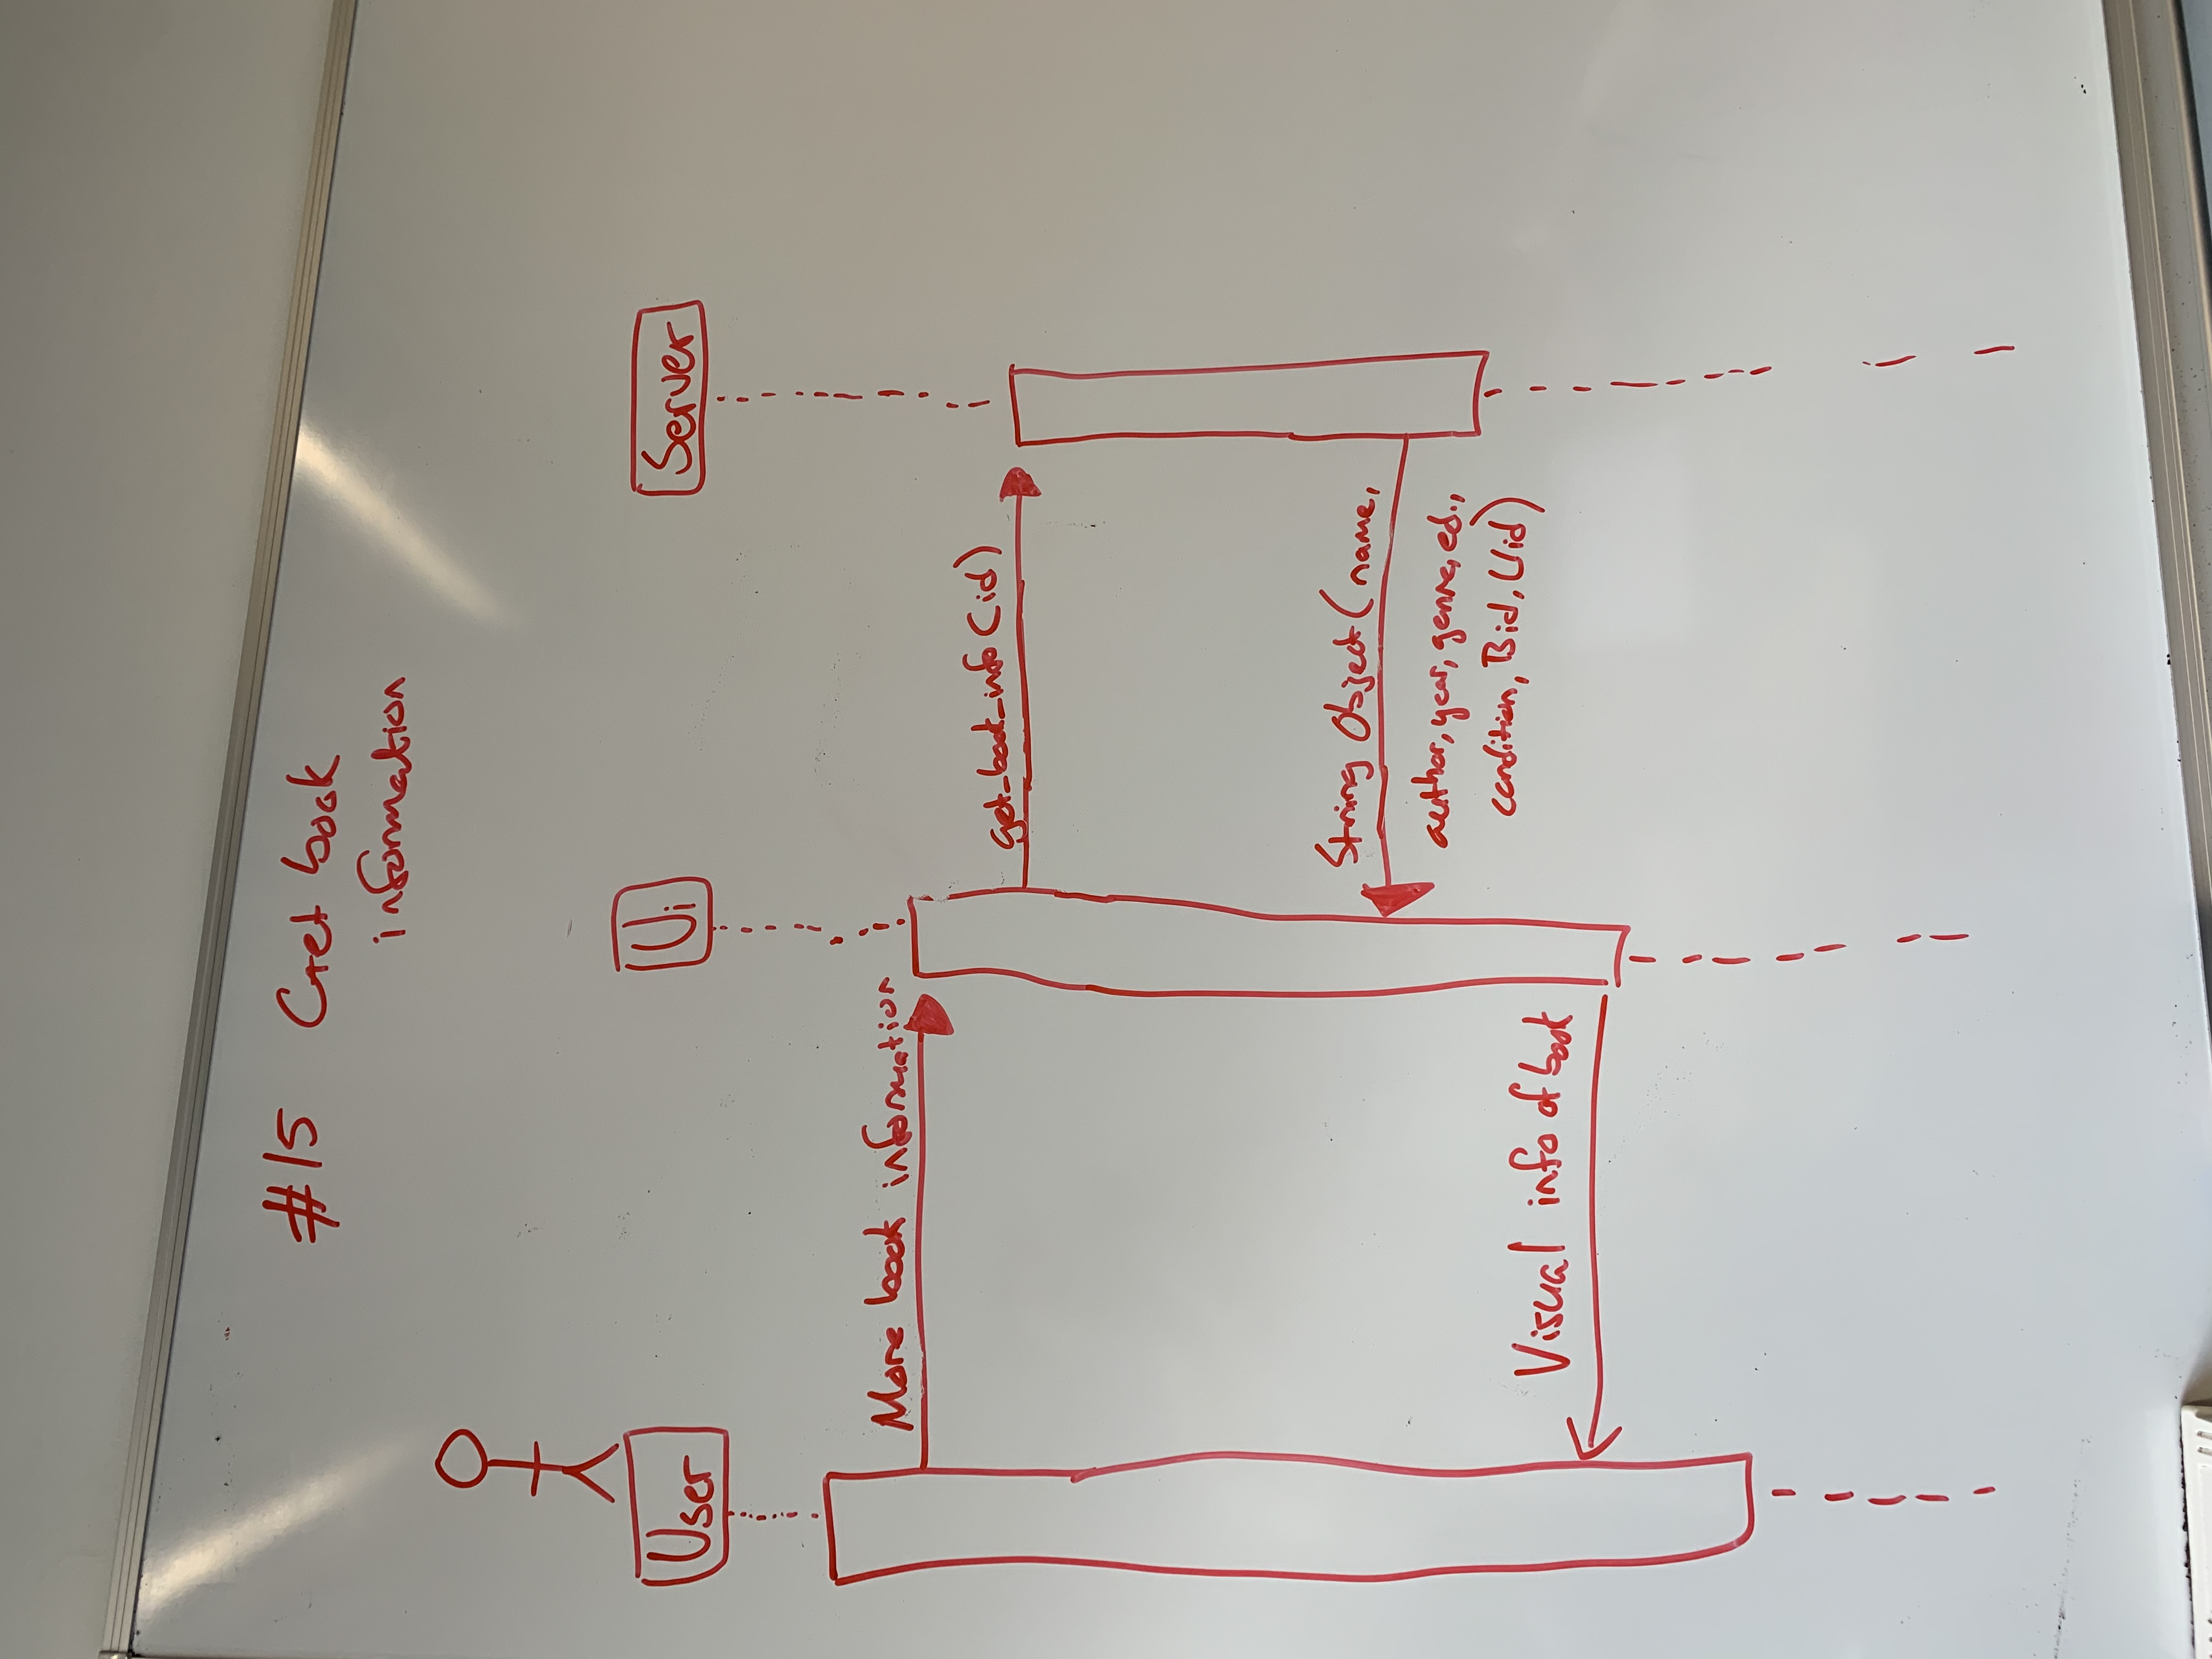 #15 Get book
information
User
Ui
Server
More book information
get_book_info(id)
String Object(name,
author, year, genre, ed.,
condition, Bid, Uid)
Visual info of book